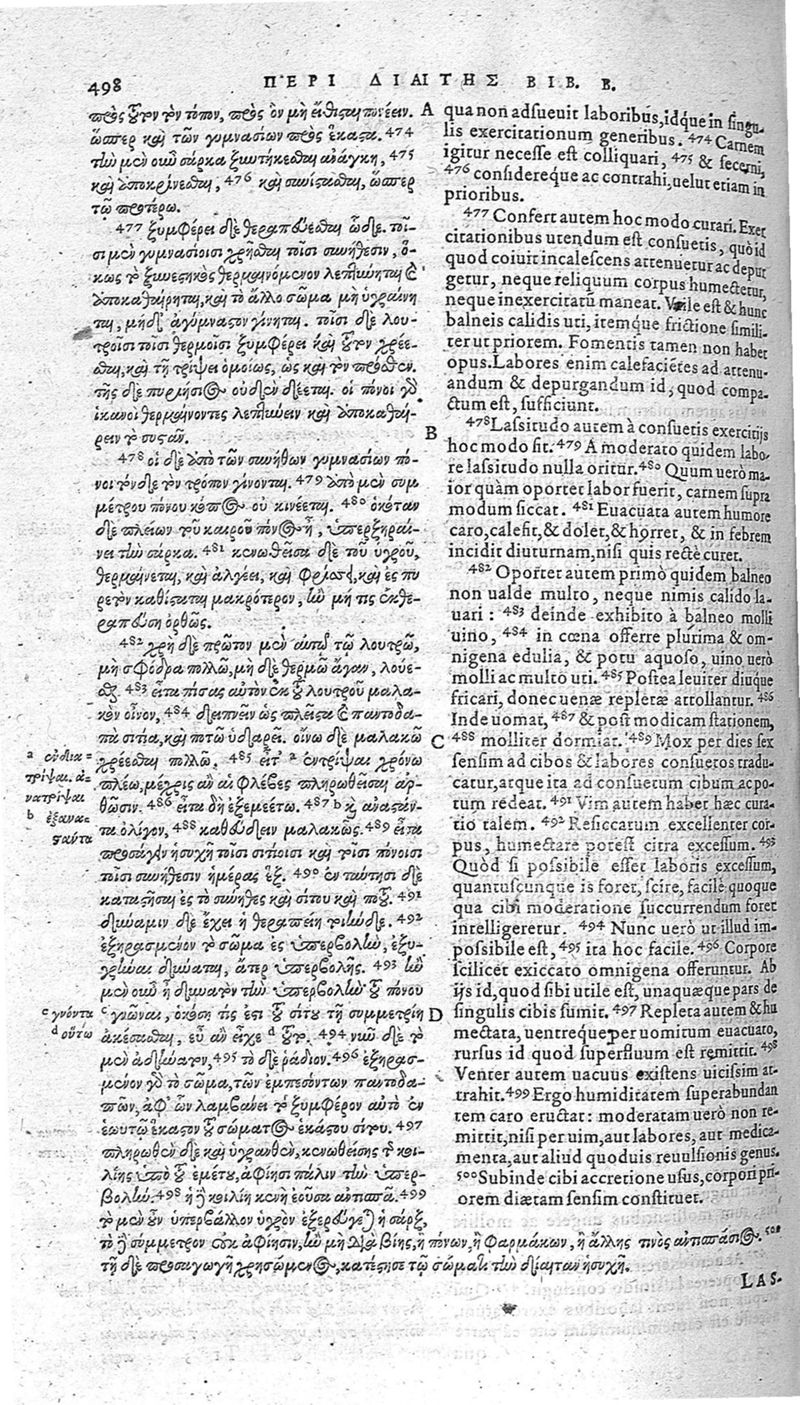 498 ΠΕΡΙ ΔΙΑΙΤΗΣ ΒΙΒ. Β.
πρὸς τοῦτον τὸν τόπον, πρὸς ὃν μὴ εἴθισται πονέειν.
ὥσπερ καὶ τῶν γυμνασίων πρὸς ἕκαστα. 474
τὴν μὲν οὖν σάρκα ξυντήκεσθαι ἀνάγκη, 475
καὶ ἀποκρίνεσθαι, 476 καὶ συνίστασθαι, ὥσπερ
τῷ προτέρῳ.
477 ξυμφέρει δὲ θεραπεύεσθαι ὧδε. τοῖ-
σι μὲν γυμνασίοισι χρῆσθαι τοῖσι συνήθεσιν, ὅ-
κως τὸ ξυνεστηκὸς θερμαινόμενον λεπτύνηται καὶ
ἀποκαθαίρηται, καὶ τὸ ἄλλο σῶμα μὴ ὑγραίνη
ται, μηδὲ ἀγύμναστον γίνηται. τοῖσι δὲ λου-
τροῖσι τοῖσι θερμοῖσι ξυμφέρει καὶ τοῦτον χρέε-
σθαι, καὶ τῇ τρίψει ὁμοίως, ὡς καὶ τὸν πρόσθεν.
τῆς δὲ πυρήσιος οὐδὲν δέεται. οἱ πόνοι γὰρ
ἱκανοὶ θερμαίνοντες λεπτύνειν καὶ ἀποκαθαί-
ρειν τὸ συστάν.
478 οἱ δὲ ἀπὸ τῶν συνήθων γυμνασίων πό-
νοι τόνδε τὸν τρόπον γίνονται. 479 ἀπὸ μὲν συμ
μέτρου πόνου κόπος οὐ κινέεται. 480 ὁκόταν
δὲ πλείων τοῦ καιροῦ πόνος ᾖ, ὑπερξηραί-
νει τὴν σάρκα. 481 κενωθεῖσα δὲ τοῦ ὑγροῦ,
θερμαίνεται, καὶ ἀλγέει, καὶ φρίσσει, καὶ ἐς πυ
ρετὸν καθίσταται μακρότερον, ἢν μή τις ἐκθε-
ραπεύσῃ ὀρθῶς.
482 χρὴ δὲ πρῶτον μὲν αὐτὸν τῷ λουτρῷ,
μὴ σφόδρα πολλῷ, μὴ δὲ θερμῷ ἄγαν, λούε-
σθαι. 483 εἶτα πίσας αὐτὸν ἐκ τοῦ λουτροῦ μαλα-
κὸν οἶνον, 484 δειπνεῖν ὡς πλεῖστα καὶ παντοδα-
πὰ σιτία, καὶ ποτῷ ὑδαρεῖ. οἴνῳ δὲ μαλακῷ
χρέεσθαι πολλῷ. 485 εἶτ' a ἐντρίψαι χρόνῳ
πλέω, μέχρις ἂν αἱ φλέβες πληρωθεῖσαι ἀρ-
θῶσιν. 486 εἶτα δὴ ἐξεμεέτω. 487 b καὶ ἀναστάν-
τα ὀλίγον, 488 καθεύδειν μαλακῶς. 489 εἶτα
προσάγειν ἡσυχῇ τοῖσι σιτίοισι καὶ τοῖσι πόνοισι
τοῖσι συνήθεσιν ἡμέρας ἕξ. 490 ἐν ταύτῃσι δὲ
καταστῆσαι ἐς τὸ σύνηθες καὶ σίτου καὶ ποτοῦ. 491
δύναμιν δὲ ἔχει ἡ θεραπείη τοιήνδε. 492
ἐξηρασμένον τὸ σῶμα ἐς ὑπερβολὴν, ἐξυ-
γρῆναι δύναται, ἄτερ ὑπερβολῆς. 493 ἢν
μὲν οὖν ᾖ δυνατὸν τὴν ὑπερβολὴν τοῦ πόνου
c γνῶναι, ὁκόση τις ἐστὶ τοῦ σίτου τῇ συμμετρίῃ
ἀκέσασθαι, εὖ ἂν εἶχε d τοῦτο. 494 νῦν δὲ τὸ
μὲν ἀδύνατον, 495 τὸ δὲ ῥάδιον. 496 ἐξηρασ-
μένον γὰρ τὸ σῶμα, τῶν ἐμπεσόντων παντοδα-
πῶν, ἀφ' ὧν λαμβάνει τὸ ξυμφέρον αὐτὸ ἐν
ἑωυτῷ ἕκαστον τοῦ σώματος ἑκάστου σίτου. 497
πληρωθὲν δὲ καὶ ὑγρανθὲν, κενωθείσης τῆς κοι-
λίης ὑπὸ τοῦ ἐμέτου, ἀφίησι πάλιν τὴν ὑπερ-
βολήν. 498 ἡ δὲ κοιλίη κενὴ ἐοῦσα ἀντισπᾷ. 499
τὸ μὲν οὖν ὑπερβάλλον ὑγρὸν ἐξερεύγεται ἡ σάρξ,
τὸ δὲ σύμμετρον οὐκ ἀφίησιν, ἢν μὴ διὰ βίης, ἢ πόνων, ἢ φαρμάκων, ἢ ἄλλης τινὸς ἀντισπάσιος. 500
τῇ δὲ προσαγωγῇ χρησάμενος, κατέστησε τῷ σώματι τὴν δίαιταν ἡσυχῇ.
a οὐδια=
τρίψαι. ἀ-
νατρίψαι
b ἐξανα=
στάντα
c γνόντα
d οὕτω
A
B
C
D
qua non adsueuit laboribus, idque in singu-
lis exercitationum generibus. 474 Carnem
igitur necesse est colliquari, 475 & secerni,
476 considereque ac contrahi, uelut etiam in
prioribus.
477 Confert autem hoc modo curari. Exer
citationibus utendum est consuetis, quò id
quod coiuit incalescens attenuetur ac depur
getur, neque reliquum corpus humectetur,
neque inexercitatū maneat. Vtile est & hunc
balneis calidis uti, itemq́ue frictione simili-
ter ut priorem. Fomentis tamen non habet
opus. Labores enim calefaciētes ad attenu-
andum & depurgandum id, quod compa-
ctum est, sufficiunt.
478 Lassitudo autem à consuetis exercitijs
hoc modo fit. 479 A moderato quidem labo-
re lassitudo nulla oritur. 480 Quum uerò ma-
ior quàm oportet labor fuerit, carnem supra
modum siccat. 481 Euacuata autem humore
caro, calefit, & dolet, & horret, & in febrem
incidit diuturnam, nisi quis rectè curet.
482 Oportet autem primò quidem balneo
non ualde multo, neque nimis calido la-
uari: 483 deinde exhibito à balneo molli
uino, 484 in cœna offerre plurima & om-
nigena edulia, & potu aquoso, uino uerò
molli ac multo uti. 485 Postea leuiter diuque
fricari, donec uenæ repletæ attollantur. 486
Inde uomat, 487 & post modicam stationem,
488 molliter dormiat. 489 Mox per dies sex
sensim ad cibos & labores consuetos tradu-
catur, atque ita ad consuetum cibum ac po-
tum redeat. 491 Vim autem habet hæc cura-
tio talem. 492 Resiccatum excellenter cor-
pus, humectare potest citra excessum. 493
Quòd si possibile esset laboris excessum,
quantuscunque is foret, scire, facilè quoque
qua cibi moderatione succurrendum foret
intelligeretur. 494 Nunc uerò ut illud im-
possibile est, 495 ita hoc facile. 496 Corpore
scilicet exiccato omnigena offeruntur. Ab
ijs id, quod sibi utile est, unaquæque pars de
singulis cibis sumit. 497 Repleta autem & hu
mectata, uentreque per uomitum euacuato,
rursus id quod superfluum est remittit. 498
Venter autem uacuus existens uicissim at-
trahit. 499 Ergo humiditatem superabundan
tem caro eructat: moderatam uerò non re-
mittit, nisi per uim, aut labores, aut medica-
menta, aut aliud quoduis reuulsionis genus.
500 Subinde cibi accretione usus, corpori pri-
orem diætam sensim constituet.
LAS-